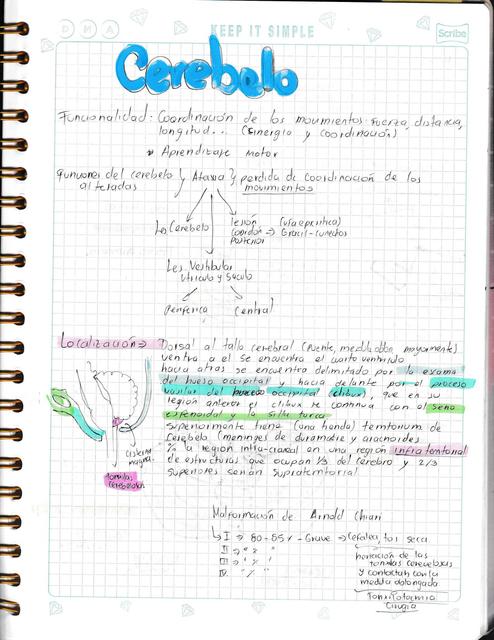 DMA
KEEP IT SIMPLE
Scribe
Cerebelo
Funcionalidad: Coordinación de los movimientos: Fuerza, distancia,
longitud... (Sinergia y coordinación)
* Aprendizaje motor
funciones del cerebelo } Ataxia } perdida de coordinación de los
alteradas movimientos
Les Cerebelo
lesión (vía epicrítica)
cordón => Gracil - cuneatos
posterior
Les Vestibular
utriculo y Saculo
Periferica Central
Localización => Dorsal al tallo cerebral (Puente, medula oblon mayormente)
ventra a el se encuentra el cuarto ventriculo
hacia atras se encuentra delimitado por la escama
del hueso occipital y hacia delante por el proceso
basilar del hueso occipital (clibux), que en su
región anterior el clibux se continua con el seno
esfenoidal y la silla turca
Superiormente tiene (una tienda) tentorium de
Cerebelo (meninges de duramadre y aracnoides
la región infra-craneal en una región infratentorial
de estructuras que ocupan 1/3 del cerebro y 2/3
superiores serían supratentorial
cisterna
magna
tonsilas
cerebelosas
Malformación de Arnold Chiari
I => 80-85% - Grave -> Cefalea, tos seca
II => " % "
III => " % "
IV " % "
herniación de las
tonsilas cerebelosas
y contactan con la
medula oblongada
Tonsilotomia
Cirugia